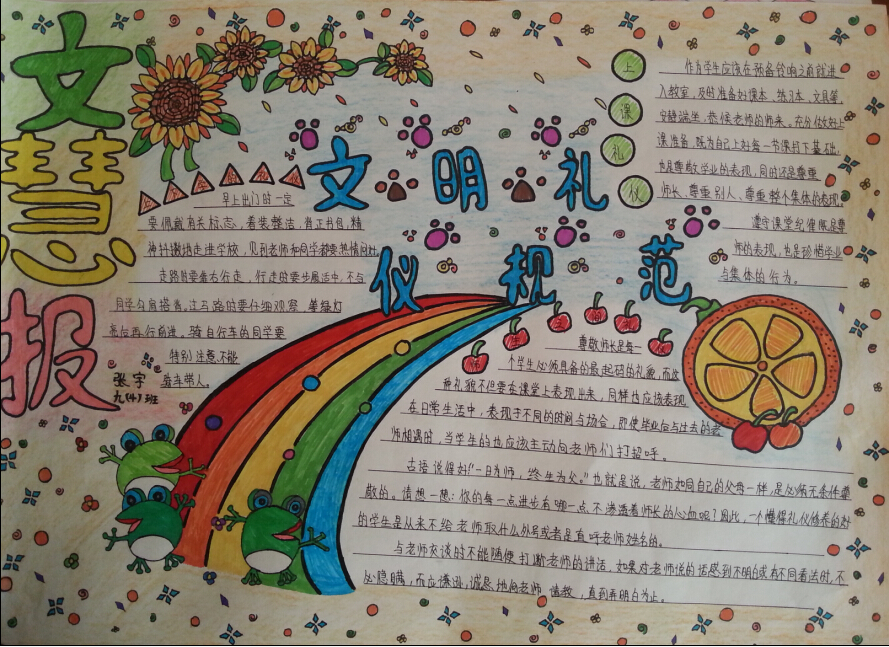 文慧报
文明礼
仪规范
张宇
九(4)班
早上出门的一定
要佩戴有关标志，着装整洁，背正书包，精
神抖擞地走进学校，见到老师和同学都要热情问好。
走路时要靠右行走，行走时要步履适中，不与
同学勾肩搭背，过马路时要仔细观察，等绿灯
亮后再行前进。骑自行车的同学要
特别注意，不能
骑车带人。
上课礼仪
作为学生应该在预备铃响之前就进
入教室，及时准备好课本，练习本，文具等，
安静端坐，恭候老师的到来。充分做好上
课准备，既为自己上好每一节课打下基础，
也是尊敬学业的表现，同时还是尊重
师长、尊重别人、尊重整个集体的表现。
遵守课堂纪律既是尊
师的表现，也是珍惜学业
与集体的行为。
尊敬师长是每一
个学生必须具备的最起码的礼貌，而这
种礼貌不但要在课堂上表现出来，同样也应该表现
在日常生活中，表现于不同的时间与场合，即使毕业后与过去的老
师相遇时，当学生的也应该主动向老师们打招呼。
古语说得好“一日为师，终生为父。”也就是说，老师如同自己的父母一样，是必须无条件尊
敬的。请想一想：你的每一点进步有哪一点不渗透着师长的心血呢？因此，一个懂得礼仪修养的好
的学生是从来不给老师取什么外号或者是直呼老师姓名的。
与老师交谈时不能随便打断老师的讲话，如果对老师说的话感到不明白或有不同看法时，不
必隐瞒，而应谦逊，诚恳地向老师请教，直到弄明白为止。